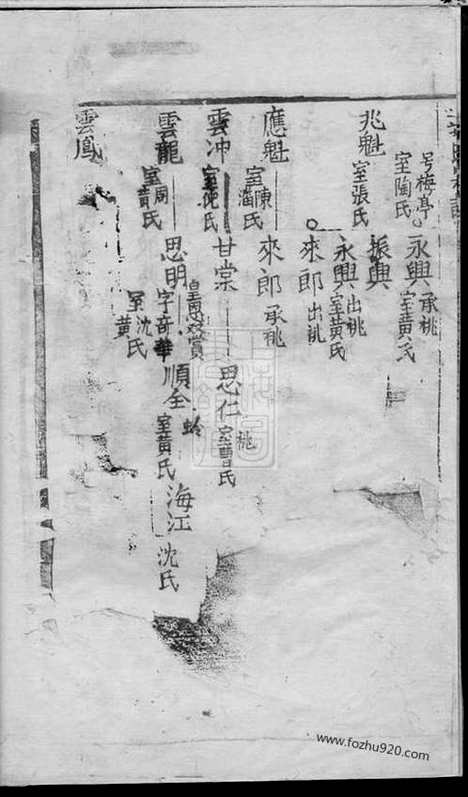 号梅亭
室陶氏
永興 承祧
室黃氏
兆魁 室張氏
振興
永興 出祧
室黃氏
來郎 出祧
應魁
室陳氏
潘
來郎 承祧
雲冲
室沈氏
甘棠
思仁 祧
室曹氏
雲龍
室周氏
黃
思明
皇恩欽賞
字奇華
室沈氏
黃
順全
蛉
室黃氏
海江
沈氏
雲鳳
www.fozhu920.com